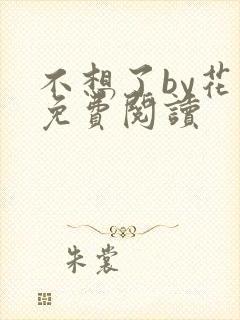 不想了by花
免費閱讀
朱裳